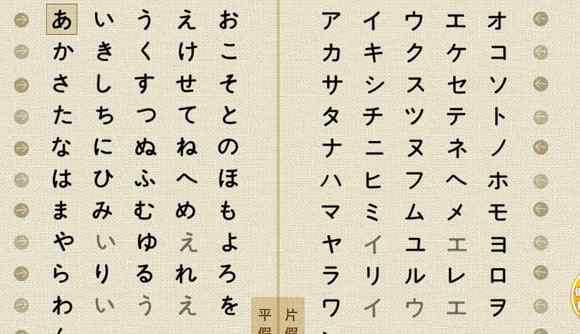 あ い う え お ア イ ウ エ オ
か き く け こ カ キ ク ケ コ
さ し す せ そ サ シ ス セ ソ
た ち つ て と タ チ ツ テ ト
な に ぬ ね の ナ ニ ヌ ネ ノ
は ひ ふ へ ほ ハ ヒ フ ヘ ホ
ま み む め も マ ミ ム メ モ
や い ゆ え よ ヤ イ ユ エ ヨ
ら り る れ ろ ラ リ ル レ ロ
わ い う え を ワ イ ウ エ ヲ
平假 片假